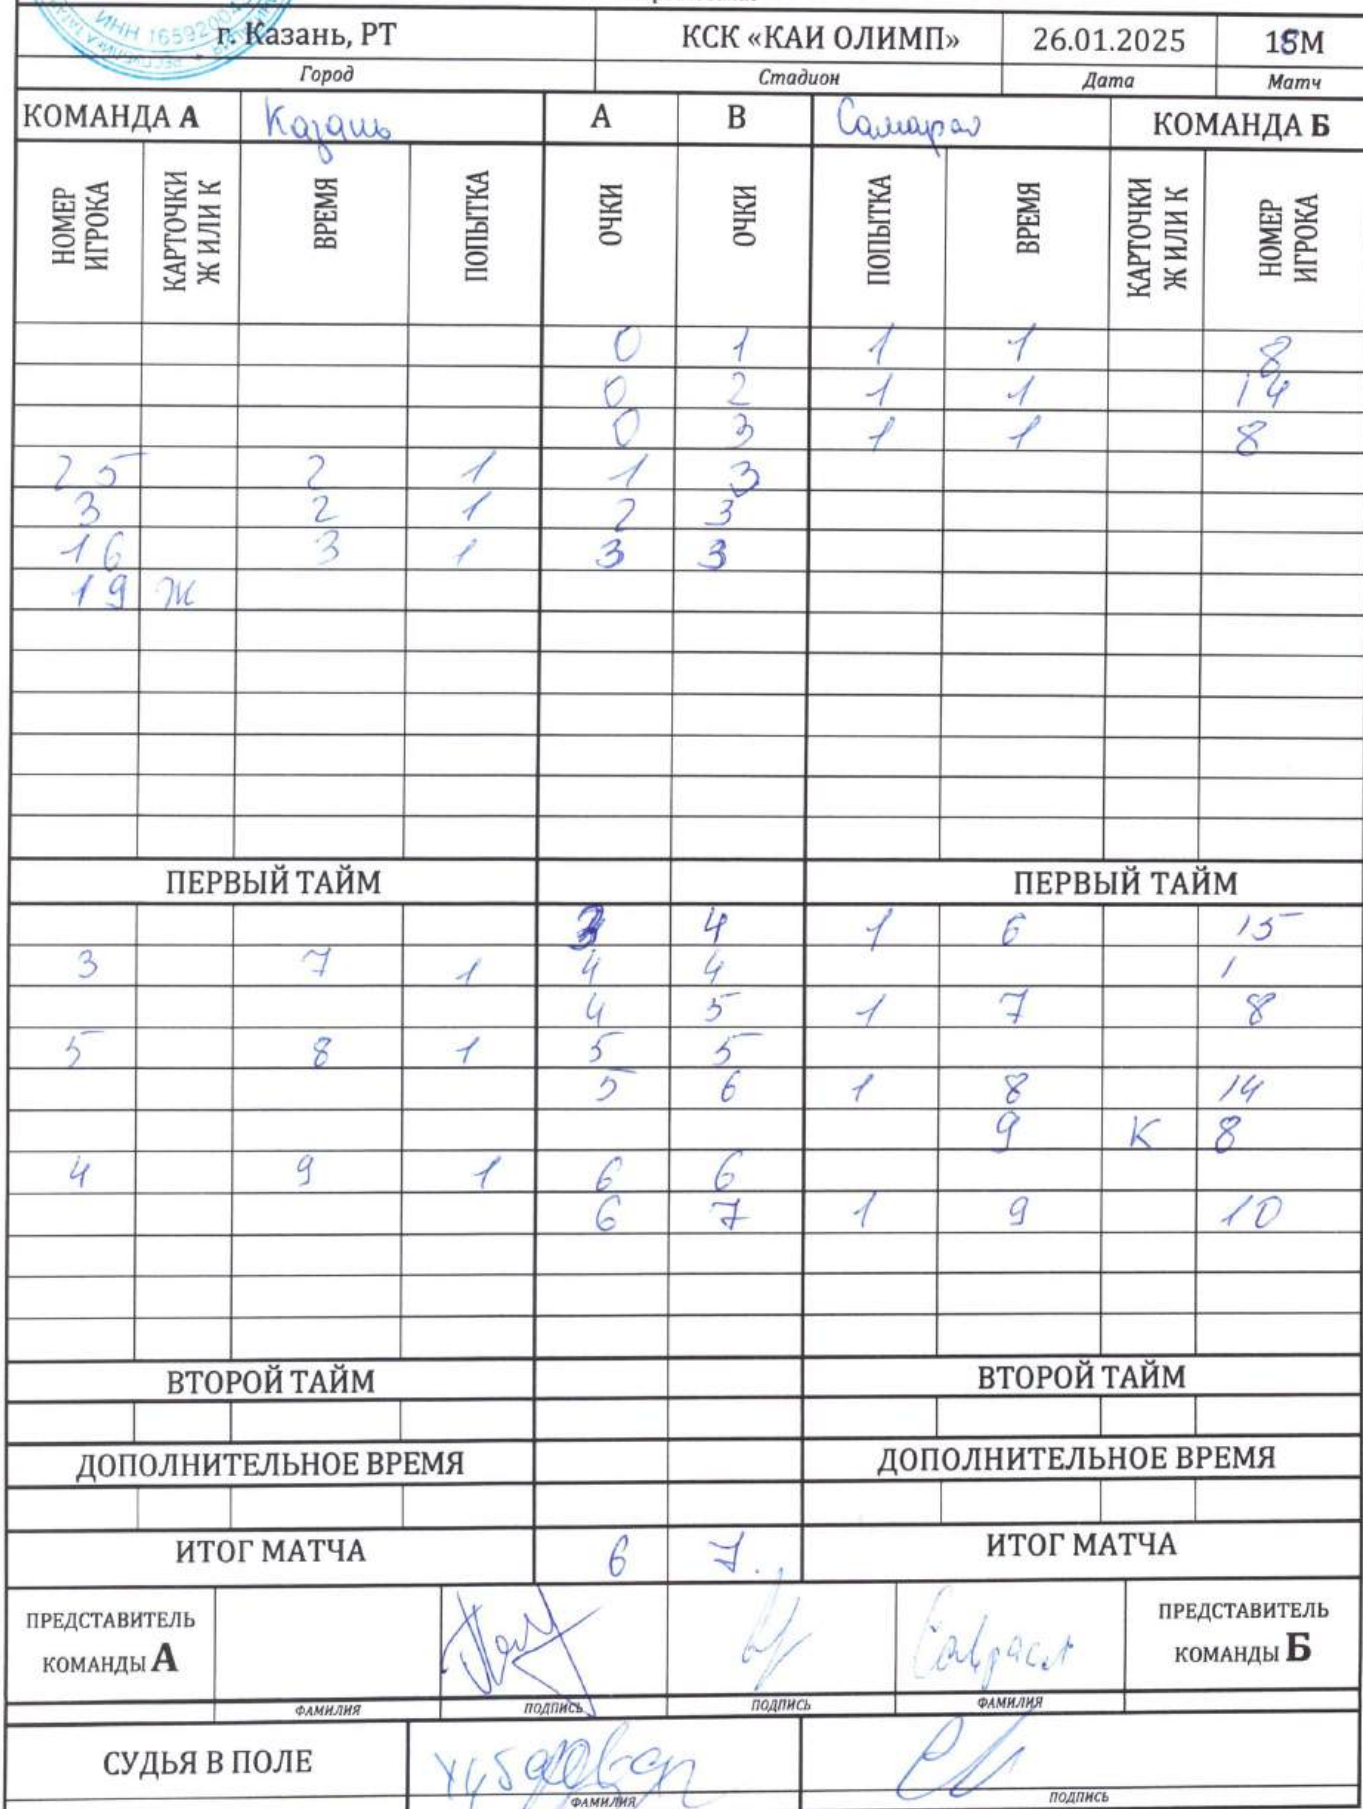 ИНН 1659200
г. Казань, РТ КСК «КАИ ОЛИМП» 26.01.2025 18М
Город Стадион Дата Матч
КОМАНДА А Казань А В Самара КОМАНДА Б
НОМЕР ИГРОКА КАРТОЧКИ Ж ИЛИ К ВРЕМЯ ПОПЫТКА ОЧКИ ОЧКИ ПОПЫТКА ВРЕМЯ КАРТОЧКИ Ж ИЛИ К НОМЕР ИГРОКА
0 1 1 1 8
0 2 1 1 14
0 3 1 1 8
25 2 1 1 3
3 2 1 2 3
16 3 1 3 3
19 Ж
ПЕРВЫЙ ТАЙМ ПЕРВЫЙ ТАЙМ
3 4 1 6 15
3 7 1 4 4 1
4 5 1 7 8
5 8 1 5 5
5 6 1 8 14
9 К 8
4 9 1 6 6
6 7 1 9 10
ВТОРОЙ ТАЙМ ВТОРОЙ ТАЙМ
ДОПОЛНИТЕЛЬНОЕ ВРЕМЯ ДОПОЛНИТЕЛЬНОЕ ВРЕМЯ
ИТОГ МАТЧА 6 7. ИТОГ МАТЧА
ПРЕДСТАВИТЕЛЬ КОМАНДЫ А ПРЕДСТАВИТЕЛЬ КОМАНДЫ Б
ФАМИЛИЯ ПОДПИСЬ ПОДПИСЬ ФАМИЛИЯ
СУДЬЯ В ПОЛЕ
ФАМИЛИЯ ПОДПИСЬ